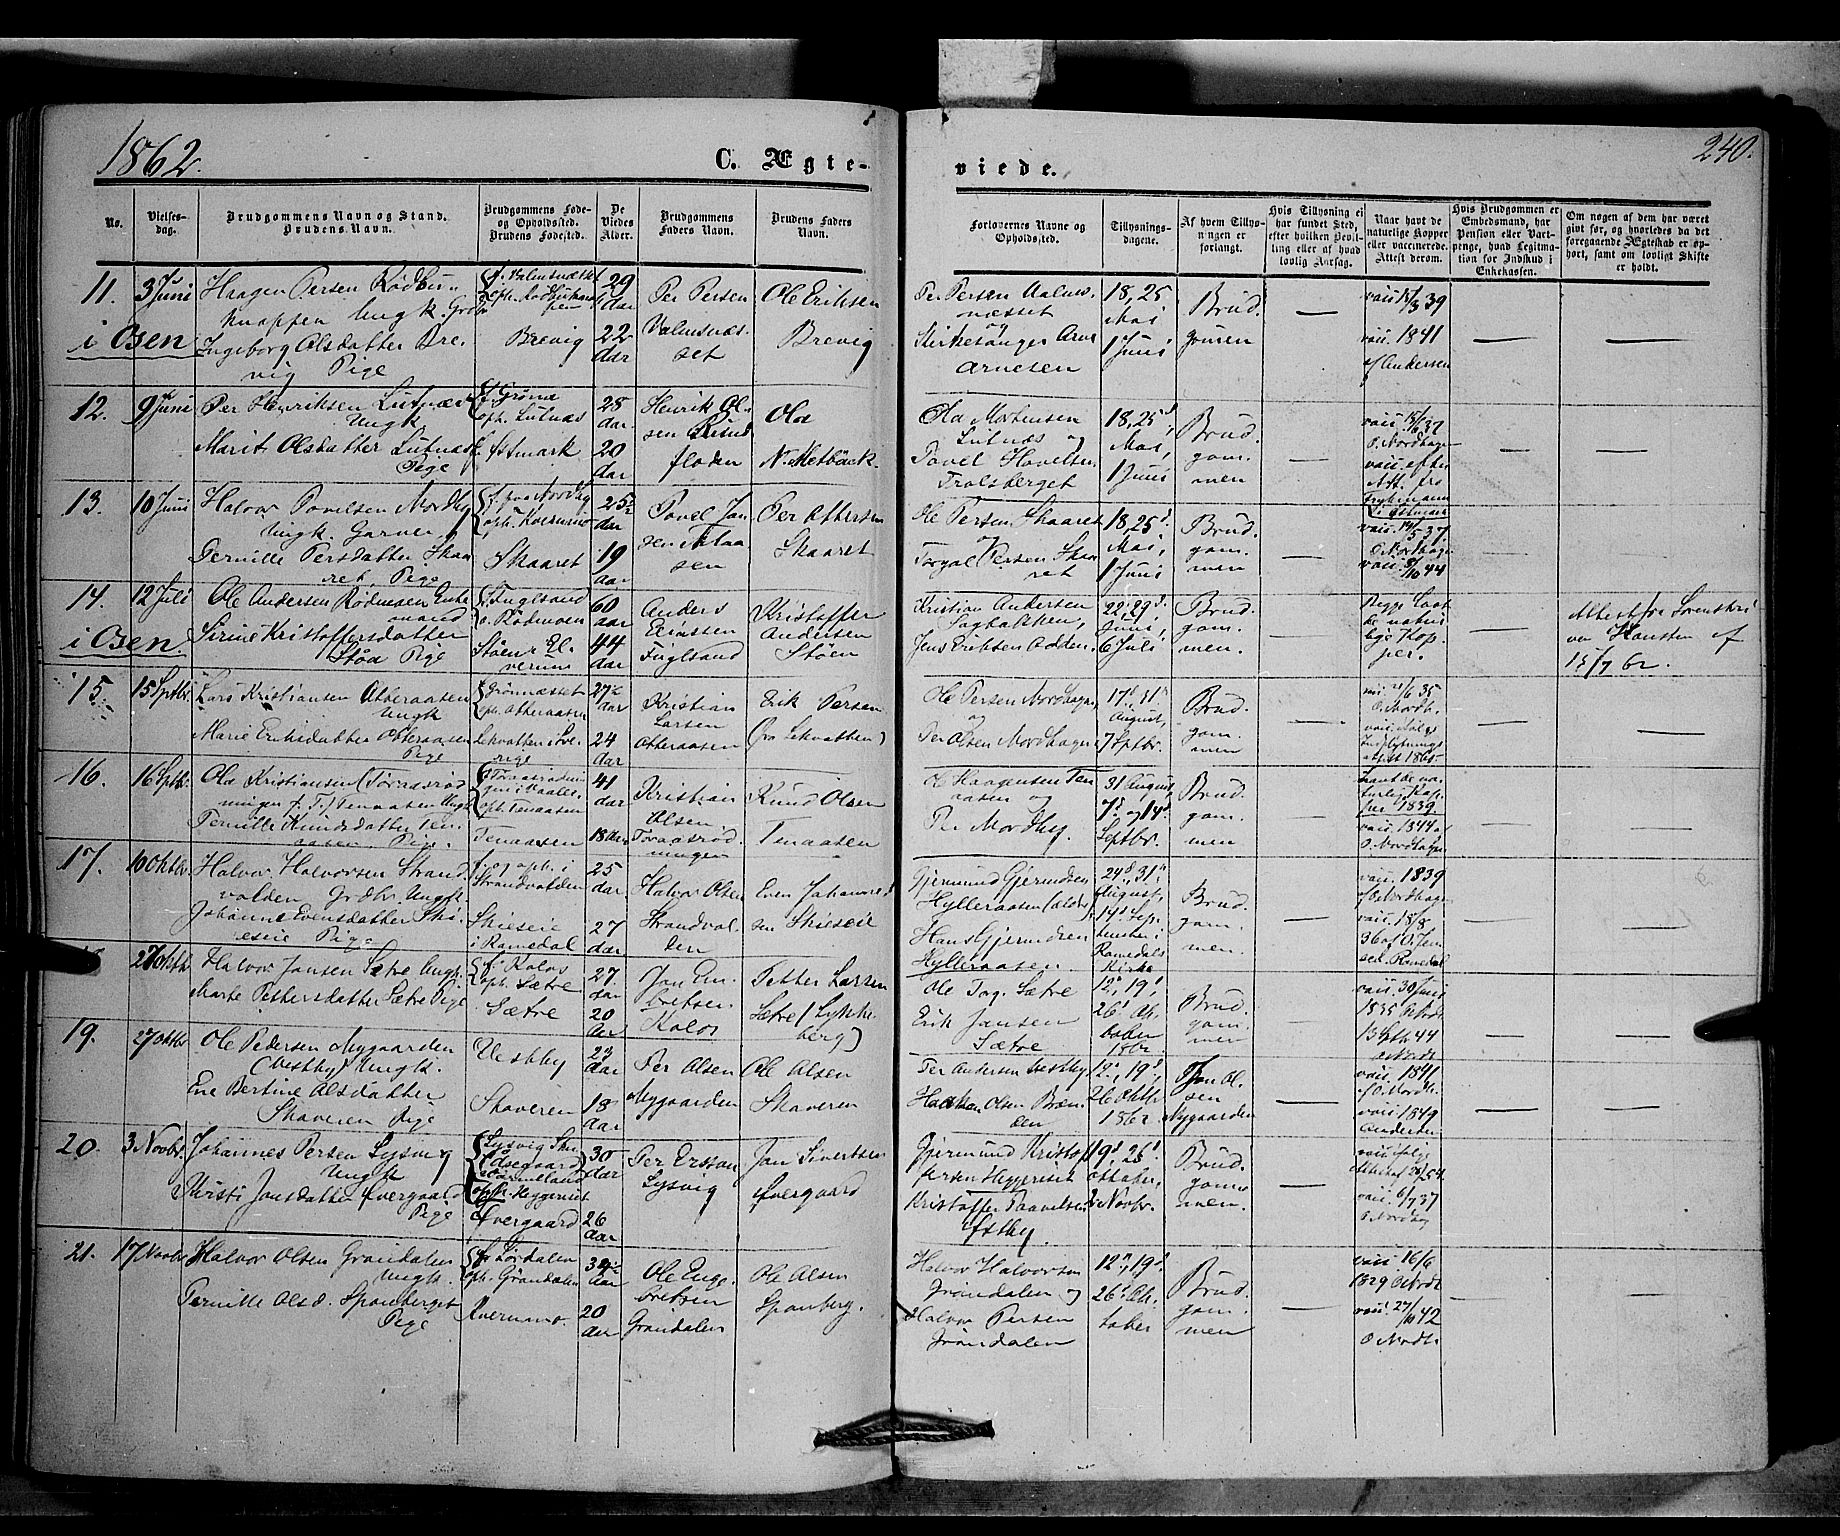 1862.
C. Ægte-
viede.
240.
No.
Vielses-
dag.
Brudgommens Navn og Stand.
Brudens Navn.
Brudgommens Føde-
og Opholdssted.
Brudens Fødested.
De
Viedes
Alder.
Brudgommens
Faders Navn.
Brudens Faders
Navn.
Forlovernes Navne og
Opholdssted.
Tillysnings-
dagene.
Af hvem Tillys-
ningen er
forlangt.
Hvis Tillysning ei
har fundet Sted,
efter hvilken Bevil-
ling eller af hvad
lovlig Aarsag.
Naar havt de
naturlige Kopper
eller vaccinerede.
Attest derom.
Hvis Brudgommen er
Embedsmand, har
Pension eller Vart-
penge, hvad Legitima-
tion for Indskud i
Enkekassen.
Om nogen af dem har været
gift før, og hvorledes da det
foregaaende Ægteskab er op-
hørt, samt om lovligt Skifte
er holdt.
11. 3 Juni
i Osen
Haagen Persen Rødbu-
knappen Ungk.
Ingeborg Olsdatter Bre-
vig Pige
Brevig
29 aar
22 aar
Per Persen
Valmsnæs-
set
Ole Eriksen
Brevig
Per Persen Valms-
næsset
og
Kirkesanger Arne
Arnesen
18, 25
Mai
1 Juni
Brud-
gomen
39
vaci. 1841
af Andersen
12. 9 Juni
Per Henriksen Lutnæs
Ungk
Marit Olsdatter Lutnæs
Pige
oph. Lutnæs
Østmark
28 aar.
20 aar
Henrik Ol-
sen
floden
Ola
N. Metbäck.
Ola Mortensen
Lutnæs og
Povel Havelsen
Trolsberget
18, 25
Mai,
1 Juni
Brud-
gom-
men
37
O. Nordhagen
vaci. efter
Att. fra
13. 10 Juni
Halvor Povelsen Nordby
Ungk. Garver,
Pernille Persdatter Skaa-
ret, Pige
Skaaret
25 aar
19 aar
Povel Jan-
sen
Per Ottersen
Skaaret
Ole Persen Skaaret
og
Torgal Persen Skaa-
ret
18, 25
Mai,
1 Juni
Brud-
gom-
men
O. Nordhagen
44
14. 12 Juli
i Osen.
Ole Andersen Rødmoen Enke-
mand
Sirine Kristoffersdatter
Støa Pige
f. Fuglsand
o. Rødmoen
Støen i El-
verum
60 aar
44 aar
Anders
Fuglsand
Kristoffer
Andersen
Støen
Kristian Andersen
Sagbakken,
Jens Eriksen Odden
22, 29
Juni,
6 Juli
Brud-
gom-
men.
Begge havt
de natur-
lige Kop-
per.
Atte. fra Sorenskri-
ver Hansten af
15/7 62.
15. 15 Septbr.
Lars Kristiansen Otteraasen
Ungk
Marie Eriksdatter Otteraasen
Pige
Grønnæsset
oph. Otteraasen
Lekvatten i Sve-
rige
27 aar
24 aar
Kristian
Larsen
Otteraasen
Erik Persen
(fra Lekvatten)
Ole Persen Nordhagen
og
Per Olsen Nordhagen
17, 31
August,
7 Septbr.
Brud-
gom-
men
35
O. Nordh.
Indflytnings
attest 1861
16. 16 Septbr.
Ola Kristiansen
Tenaasen Ungk
Pernille Knudsdatter Ten-
aasen, Pige.
oph. Tenaasen
Tenaasen
41 aar
18 aar
Kristian
Olsen
Knud Olsen
Tenaasen
Ole Haagensen Ten-
aasen og
Per Nordby.
31 August,
7 og 14
Septbr.
Brud-
gom-
men
havt de na-
turlig Kop-
per 1839.
vaci. 1844 af
O. Nordhagen
17. 10 Oktbr.
Halvor Halvorsen Strand-
volden Grdbr. Ungk.
Johanne Evensdatter Ski-
eseie Pige
f. og oph. i
Strandvolden
Skieseie
i Romedal
25 aar.
27 aar
Halvor Olsen
Strandvol-
den
Even Johannes-
sen Skieseie
Gjermund Gjermdsen
Hylleraasen (ældre)
Hans Gjermdsen
Hylleraasen.
24, 31
August,
14 Sep-
tember i
Romedals
Kirke
Brud-
gom-
men.
vaci. 1839
af O. Nordhagen
vaci. 18/8
36 af O. Jen
Romedal
27 Oktbr.
Halvor Jansen Sætre Ungk.
Marte Pettersdatter Sætre Pige
f. Kolos
oph. Sætre
Sætre
27 aar
20 aar
Jan Em-
bretsen
Kolos
Petter Larsen
Sætre (Lykke-
berg)
Ole Sætre
Erik Jansen
Sætre
12, 19,
26 Ok-
tober
1862
Brud-
gom-
men
vaci. 30 Juni
1835
13 Sptb. 44
19. 27 Oktbr.
Ole Pedersen Nygaarden
(Vestby) Ungk.
Ene Bertine Olsdatter
Skaveren Pige
Vestby
Skaveren
23 aar
18 aar
Per Olsen
Nygaarden
Ole Olsen
Skaveren
Per Andersen Vestby
Haakon Olsen Bræn-
den
12, 19,
26 Oktbr.
1862
Jon Ol-
sen
Nygaarden
vaci. 1841
af O. Nordh.
vaci. 1849
Andersen
20. 3 Novbr.
Johannes Persen Lysvig
Ungk
Kirsti Jonsdatter Øvergaard
Pige
oph. Heggeriset
Øvergaard
30 aar
26 aar
Per Ersson
Lysvig
Jon Sivertsen
Øvergaard
Gjermund Kristof-
fersen Heggeriset
Kristoffer Paavelsen
Østby.
19, 26
Oktober,
2 Novbr.
Brud-
gom-
men.
54
vaci. 6/7 37
O. Nordhag
21. 17 Novbr.
Halvor Olsen Grøndalen
Ungk.
Pernille Olsd. Spanberget
Pige
f. Lørdalen
oph. Grøndalen
Kvermmo.
aar
20 aar
Ole Enge-
bretsen
Grøndalen
Ole Olsen
Spanberg.
Halvor Halvorsen
Grøndalen og
Halvor Persen
Grøndalen
12, 19,
26 Ok-
tober
Brud-
gom-
men
vaci. 16/6
1829 O. Nordt
vaci. 27/10 42
O. Nordt.